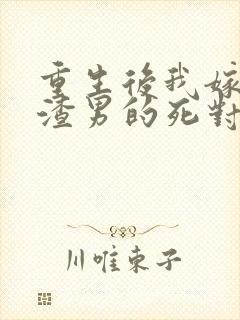 重生後我嫁
渣男的死對
川唯東子